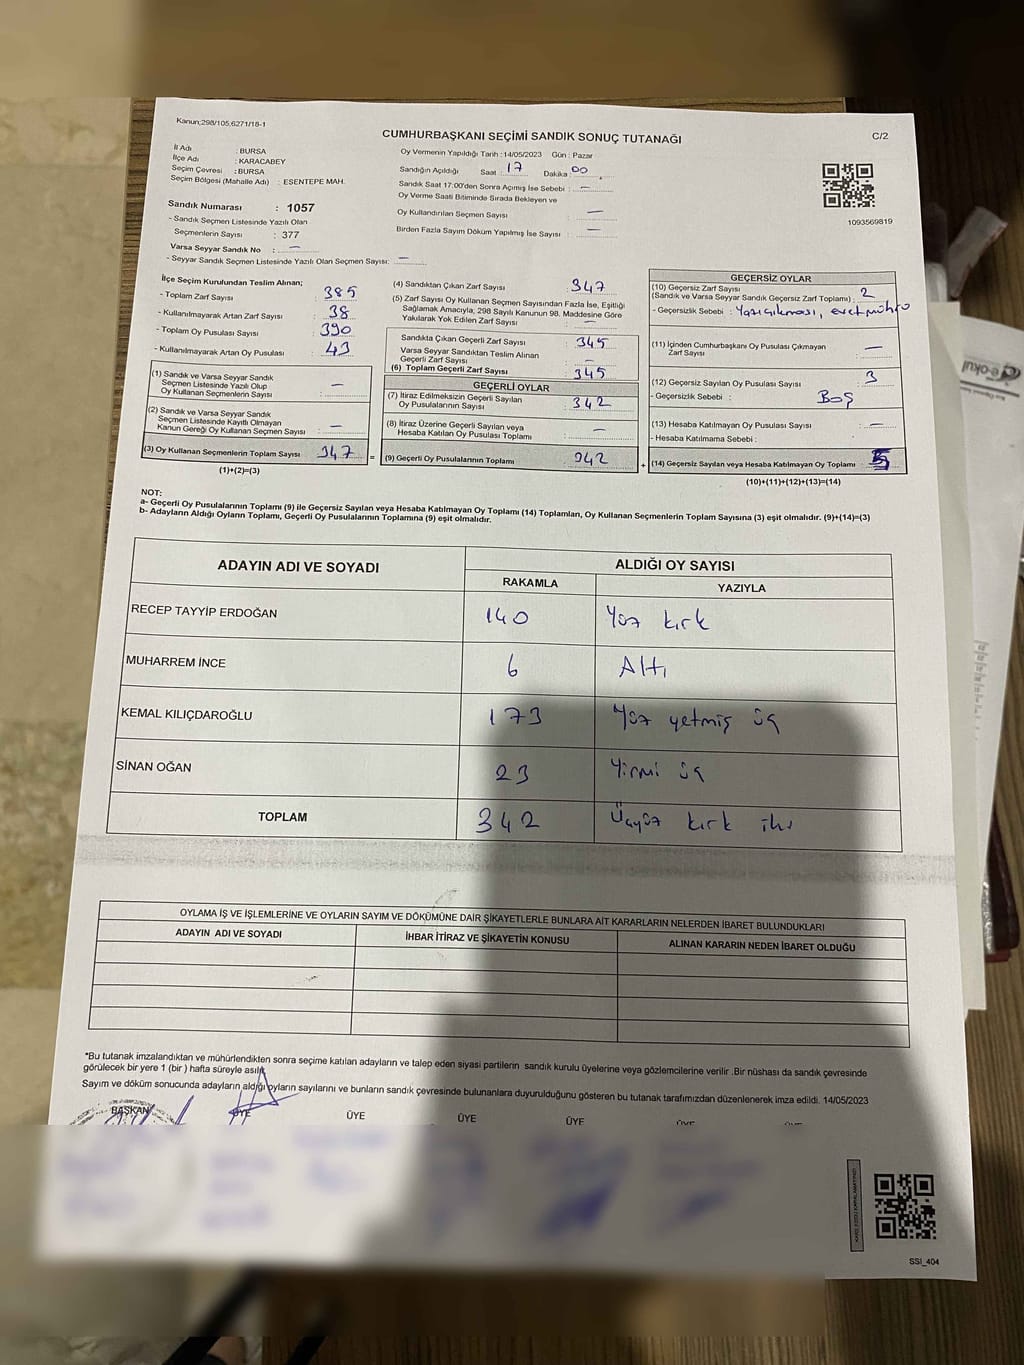 Kanun;298/105,6271/18-1
CUMHURBAŞKANI SEÇİMİ SANDIK SONUÇ TUTANAĞI
C/2
İl Adı : BURSA
İlçe Adı : KARACABEY
Seçim Çevresi : BURSA
Seçim Bölgesi (Mahalle Adı) : ESENTEPE MAH.
Sandık Numarası : 1057
- Sandık Seçmen Listesinde Yazılı Olan
Seçmenlerin Sayısı : 377
Varsa Seyyar Sandık No : —
- Seyyar Sandık Seçmen Listesinde Yazılı Olan Seçmen Sayısı: —
Oy Vermenin Yapıldığı Tarih : 14/05/2023 Gün : Pazar
Sandığın Açıldığı Saat : 17 Dakika : 00
Sandık Saat 17:00'den Sonra Açımış İse Sebebi : —
Oy Verme Saati Bitiminde Sırada Bekleyen ve
Oy Kullandırılan Seçmen Sayısı : —
Birden Fazla Sayım Döküm Yapılmış İse Sayısı : —
1093569819
İlçe Seçim Kurulundan Teslim Alınan;
- Toplam Zarf Sayısı : 385
- Kullanılmayarak Artan Zarf Sayısı : 38
- Toplam Oy Pusulası Sayısı : 390
- Kullanılmayarak Artan Oy Pusulası : 43
(1) Sandık ve Varsa Seyyar Sandık
Seçmen Listesinde Yazılı Olup
Oy Kullanan Seçmenlerin Sayısı : —
(2) Sandık ve Varsa Seyyar Sandık
Seçmen Listesinde Kayıtlı Olmayan
Kanun Gereği Oy Kullanan Seçmen Sayısı : —
(3) Oy Kullanan Seçmenlerin Toplam Sayısı : 347 =
(1)+(2)=(3)
(4) Sandıktan Çıkan Zarf Sayısı : 347
(5) Zarf Sayısı Oy Kullanan Seçmen Sayısından Fazla İse, Eşitliği
Sağlamak Amacıyla; 298 Sayılı Kanunun 98. Maddesine Göre
Yakılarak Yok Edilen Zarf Sayısı : —
Sandıkta Çıkan Geçerli Zarf Sayısı : 345
Varsa Seyyar Sandıktan Teslim Alınan
Geçerli Zarf Sayısı : —
(6) Toplam Geçerli Zarf Sayısı : 345
GEÇERLİ OYLAR
(7) İtiraz Edilmeksizin Geçerli Sayılan
Oy Pusulalarının Sayısı : 342
(8) İtiraz Üzerine Geçerli Sayılan veya
Hesaba Katılan Oy Pusulası Toplamı : —
(9) Geçerli Oy Pusulalarının Toplamı : 342 +
GEÇERSİZ OYLAR
(10) Geçersiz Zarf Sayısı
(Sandık ve Varsa Seyyar Sandık Geçersiz Zarf Toplamı) : 2
- Geçersizlik Sebebi : Yazı çıkması, evet mührü
(11) İçinden Cumhurbaşkanı Oy Pusulası Çıkmayan
Zarf Sayısı : —
(12) Geçersiz Sayılan Oy Pusulası Sayısı : 3
- Geçersizlik Sebebi : Boş
(13) Hesaba Katılmayan Oy Pusulası Sayısı : —
- Hesaba Katılmama Sebebi :
(14) Geçersiz Sayılan veya Hesaba Katılmayan Oy Toplamı : 5
(10)+(11)+(12)+(13)=(14)
NOT:
a- Geçerli Oy Pusulalarının Toplamı (9) ile Geçersiz Sayılan veya Hesaba Katılmayan Oy Toplamı (14) Toplamları, Oy Kullanan Seçmenlerin Toplam Sayısına (3) eşit olmalıdır. (9)+(14)=(3)
b- Adayların Aldığı Oyların Toplamı, Geçerli Oy Pusulalarının Toplamına (9) eşit olmalıdır.
ADAYIN ADI VE SOYADI ALDIĞI OY SAYISI
RAKAMLA YAZIYLA
RECEP TAYYİP ERDOĞAN 140 Yüz kırk
MUHARREM İNCE 6 Altı
KEMAL KILIÇDAROĞLU 173 Yüz yetmiş üç
SİNAN OĞAN 23 Yirmi üç
TOPLAM 342 Üçyüz kırk iki
OYLAMA İŞ VE İŞLEMLERİNE VE OYLARIN SAYIM VE DÖKÜMÜNE DAİR ŞİKAYETLERLE BUNLARA AİT KARARLARIN NELERDEN İBARET BULUNDUKLARI
ADAYIN ADI VE SOYADI İHBAR İTİRAZ VE ŞİKAYETİN KONUSU ALINAN KARARIN NEDEN İBARET OLDUĞU
*Bu tutanak imzalandıktan ve mühürlendikten sonra seçime katılan adayların ve talep eden siyasi partilerin sandık kurulu üyelerine veya gözlemcilerine verilir .Bir nüshası da sandık çevresinde
görülecek bir yere 1 (bir ) hafta süreyle asılır.
Sayım ve döküm sonucunda adayların aldığı oyların sayılarını ve bunların sandık çevresinde bulunanlara duyurulduğunu gösteren bu tutanak tarafımızdan düzenlenerek imza edildi. 14/05/2023
BAŞKAN ÜYE ÜYE ÜYE ÜYE ÜYE
SSİ_404
e-okul